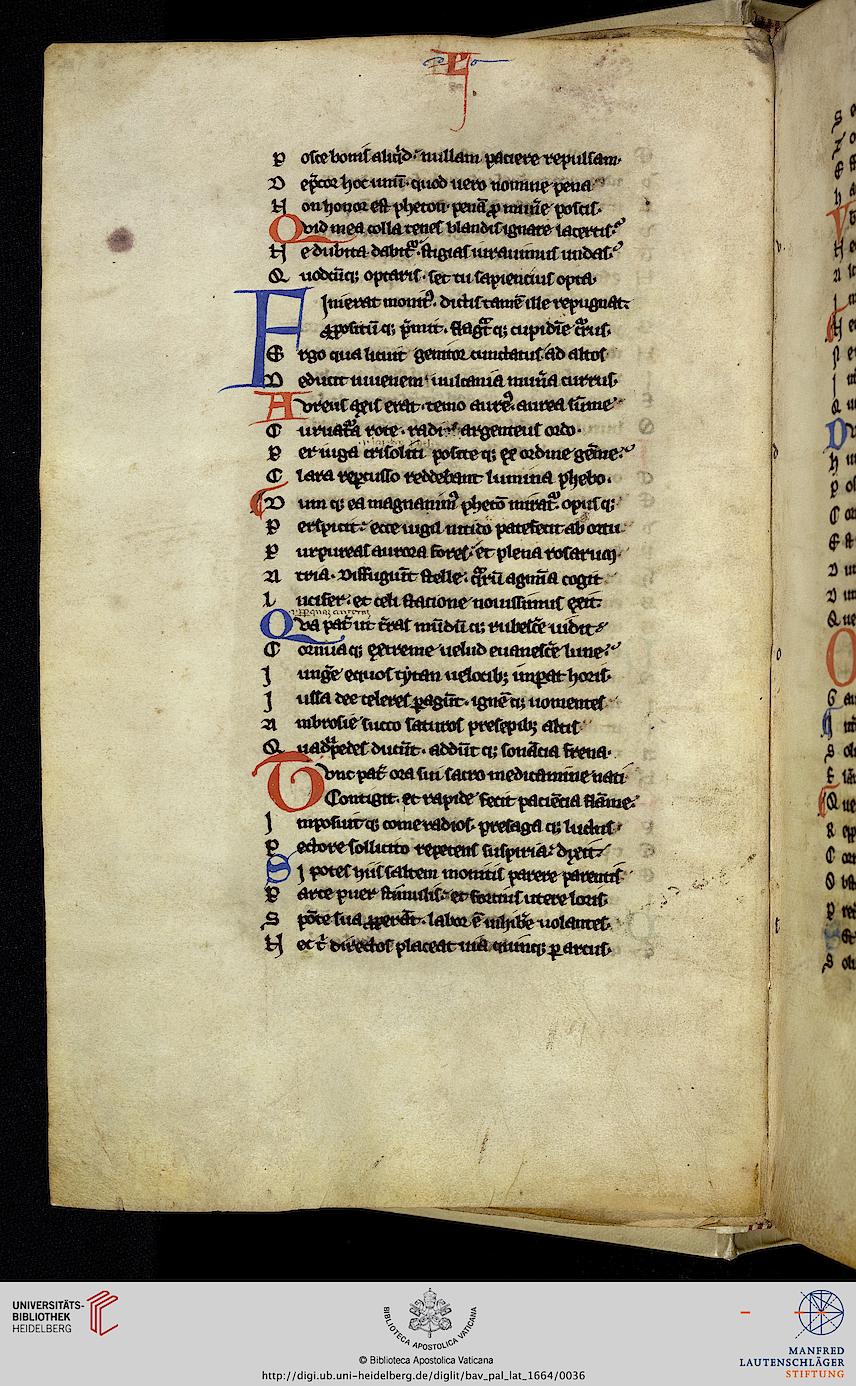 P osce bonis aliq̇d· nullam paciere repulsam·
D ep̄cor hoc unū· quod uero nomine pena
N on honor est· pheton· penā ꝓ mun̄e poscis·
Qvid mea colla tenes blandis ignare lacertis·
N e dubita dabit᷑· stigias iurauimus undas·
Q uodcūq; optaris· set tu sapiencius opta·
Finierat monit᷒· dictis tamē ille repugnat·
ꝓpositū q; p̄mit· flagᷓt q; cupidīe cᷓrus·
E rgo qua licuit genitor cunctatus ad altos
D educit iuuenem· uulcania mun̄a currus·
Avreus axis erat· temo aure᷒· aurea sūme
C uruat̄a rote· radi argenteus ordo·
P er iuga crisoliti posite q; ex ordine gēme·
C lara rep̄cusso reddebant lumina phebo·
D um q; ea magnanim᷒ phetō mirat᷑· opus q;
P erspicit· ecce uigil nitido patefecit ab ortu
P urpureas aurora fores· et plena rosarum
A tria· Diffugiūt stelle· q̄rū agmīa cogit
L ucifer· et celi statione nouissimus exit·
Qva pat̄ ut t̄ras mūdū q; rubesc̄e uidit
C ornua q; extreme uelud euanesc̄e lune·
I unge equos tytan uelocib; impat horis·
I ussa dee celeres ꝑagūt· ignē q; uomentes
A mbrosie succo saturos presepib; altis
Q uadᷓpedes ducūt· addūt q; sonācia frena·
Tvnc pat̄ ora sui sacro medicamine nati
Contigit· et rapide fecit paciēcia flāme·
I mposuit q; come radios· presaga q; luctus
P ectore sollicito repetens suspiria· dixit·
S i potes hiis saltem monitis parere parentis
P arce puer stimulis· et fortius utere loris·
S pōte sua ꝓperāt· labor ē inhib̄e uolantes·
N ec t̄ directos placeat uia quinq; ꝑ arcus·
UNIVERSITÄTS-
BIBLIOTHEK
HEIDELBERG
BIBLIOTECA APOSTOLICA VATICANA
© Biblioteca Apostolica Vaticana
http://digi.ub.uni-heidelberg.de/diglit/bav_pal_lat_1664/0036
MANFRED
LAUTENSCHLÄGER
STIFTUNG